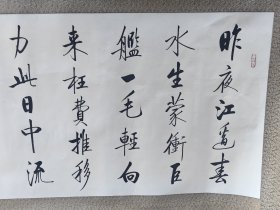 昨夜江邊春
水生蒙衝巨
艦一毛輕向
来枉費推移
力此日中流